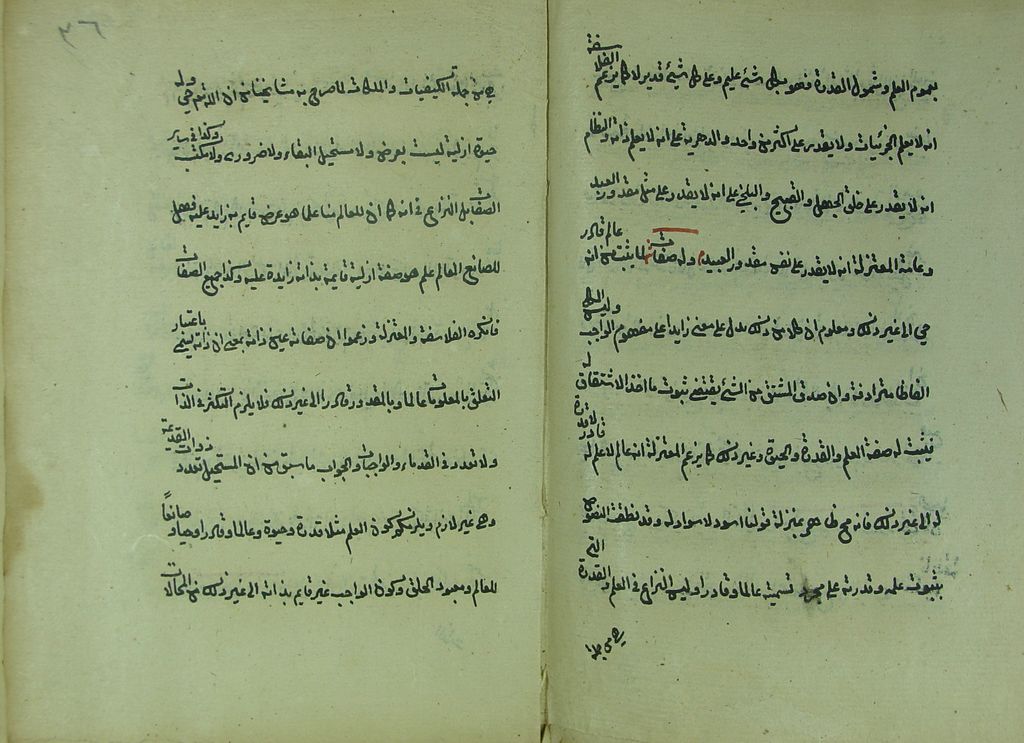 بعموم العلم وشمول القدرة فهو بكل شئ عليم وعلى كل شئ قدير لا كما يزعم الفلاسفة
انه لا يعلم الجزئيات ولا يقدر على اكثر من واحد والدهرية على انه لا يعلم ذاته والنظام
انه لا يقدر على خلق الجهل والقبيح والبلخي على انه لا يقدر على مثل مقدور العبد
وعامة المعتزلة انه لا يقدر على نفس مقدور العبد وله صفات لما ثبت من انه عالم قادر
حي الى غير ذلك ومعلوم ان كلا من ذلك يدل على معنى زايد على مفهوم الواجب وليس الكل
الفاظا مترادفة وان صدق المشتق من الشئ يقتضي ثبوت ماخذ الاشتقاق له
فيثبت له صفة العلم والقدرة والحيوة وغير ذلك لا كما يزعم المعتزلة انه عالم لا علم له قادر لا قدرة
له الى غير ذلك فانه محال ظاهر بمنزلة قولنا اسود لا سواد له وقد نطقت النصوص
بثبوت علمه وقدرته على مجرد تسميته عالما وقادرا وليس النزاع في العلم والقدرة التي
هي من جملة
٣٦
هي من جملة الكيفيات والملكات لما صرح به مشايخنا من ان الله تعالى حي وله
حيوة ازلية ليست بعرض ولا مستحيل البقاء ولا ضروري ولا مكتسب وكذا في ساير
الصفات بل النزاع في انه كما ان للعالم منا علما هو عرض قايم به زايد عليه فهل
للصانع العالم علم هو صفة ازلية قايمة بذاته زايدة عليه وكذا جميع الصفات
فانكره الفلاسفة والمعتزلة وزعموا ان صفاته عين ذاته بمعنى ان ذاته يسمى باعتبار
التعلق بالمعلومات عالما وبالمقدورات قادرا الى غير ذلك فلا يلزم التكثر في الذات
ولا تعدد في القدماء والواجبات والجواب ما سبق من ان المستحيل تعدد ذوات القديمة
وهو غير لازم ويلزمكم كون العلم مثلا قدرة وحيوة وعالما وقادرا وحيا وصانعا
للعالم ومعبود الخلق وكون الواجب غير قايم بذاته الى غير ذلك من المحالات